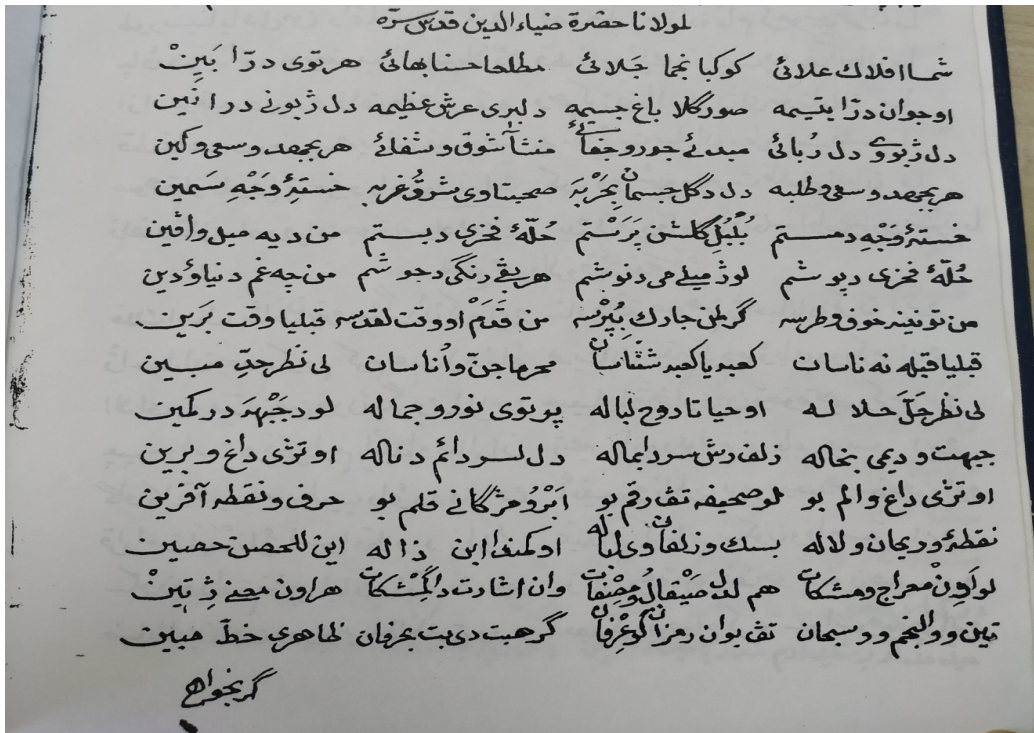 لمولانا حضرة ضياء الدين قدس سره
شمسا افلاك علائى كوكبا نجما جلائى مطلعا حسنا بهائى هر توى درّا بَيِنْ
او جوان درّا يتيمه صور گلا باغ جسيمه دلبرى عرش عظيمه دل ژبونے در انين
دل ژبووے دل رُبائى مبدئے جور و جفائے منشأ شوق و شفائے هر بجهد و سعى و كين
هر بجهد و سعى و طلبه دل دگل جسمان بِحَرْبَه صحبتاوى شرق و غربه خستۀ وَجْهِ سَمين
خستۀ وَجْهِ دمستم بُلْبُلِ گلشن پَرَسْتم حُلّۀ فخرى دبستم من ديه ميل و اڤين
حُلّۀ فخرى دپوشم لوژ ميلے مى دنوشم هر بڤے رنگى دجوشم من چه غم دنيا و دين
من تو نينه خوف و طرسه گر بطن جارك بِپُرْسه من قَدَمْ او وقت لقدسه قبليا وقت بَرين
قبليا قبله نه ناسان كعبه يا كعبه شناسان محرما جنّ و اُناسان لى نظر حدِّ مبين
لى نظر جَلَّ جلاله او حياتا دوح لباله پوتوى نور و جماله لو دجَبْهَه در كمين
جبهت و ديمى بخاله زلف دش سر دابماله دل لسر دائم دناله او تژى داغ و برين
او تژى داغ و الم بو لو صحيفه تڤ رقم بو اَبْرُو مژگانے قلم بو حرف و نقطه آفرين
نقطۀ و ريحان و لاله بسك و زلفان وى لباله او كمند اين ذاله اين للحصن حصين
لو اَوِنْ معراج و مشكات هم لدل صَيْقال و مِصْفات وان اشارت داكِمْشكات هر اون معنے ژتِينْ
تين و والنجم و وسبحان تڤ بوان رمزان گو عِرْفان گر هبت دى بت بعرفان ظاهرى خطّ مبين
گر بخواهى